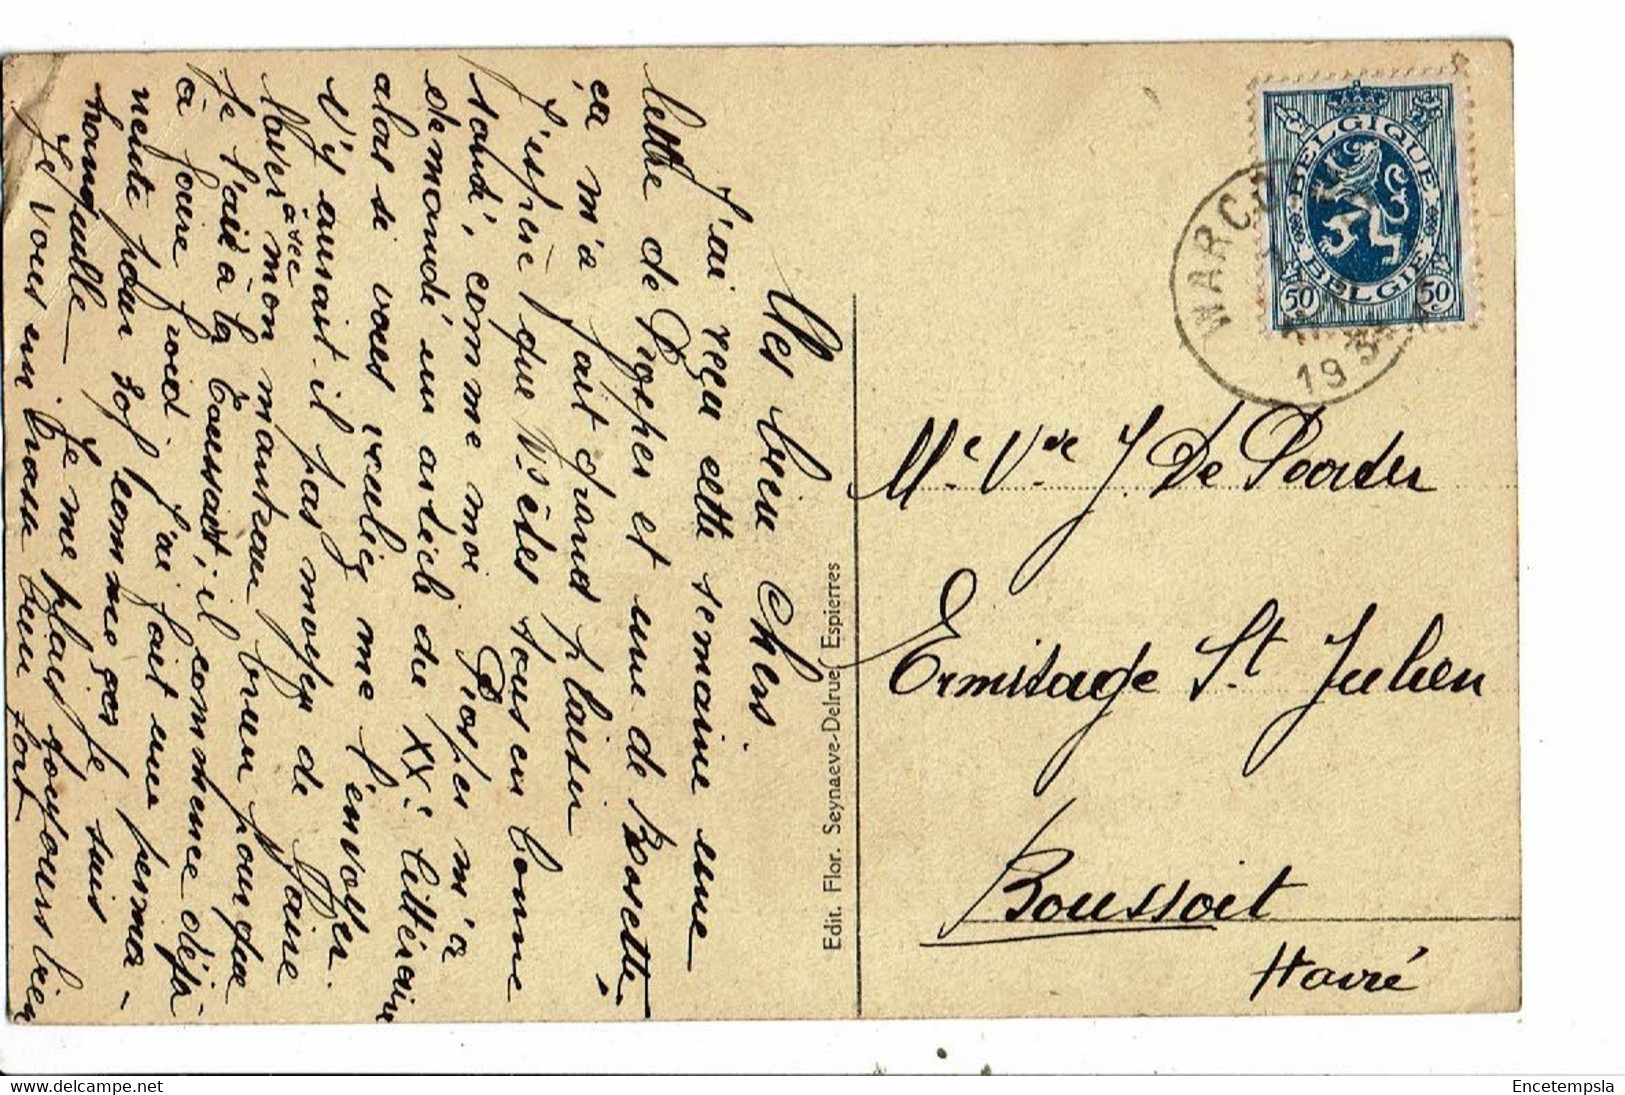 Mes bien Chers.
J'ai reçu cette semaine une
lettre de Prosper et une de Rosette.
ça m'a fait grand plaisir
J'espère que vs êtes tous en bonne
santé, comme moi Prosper m'a
demandé un article du XXe littéraire
alors si vous voulez me l'envoyer.
N'y aurait-il pas moyen de faire
laver mon manteau brun pour que
avec
je l'aie à la Toussaint, il commence déjà
à faire froid. J'ai fait une perma-
nente pour 30f comme ça je suis
tranquille Je me plais toujours bien
Je vous embrasse bien fort
Edit. Flor. Seynaeve-Delruel Espierres
BELGIQUE
BELGIE
50 50
WARC
193
Me Vve J. De Poorter
Ermitage St Julien
Boussoit
Havré
delcampe.net
Encetempsla